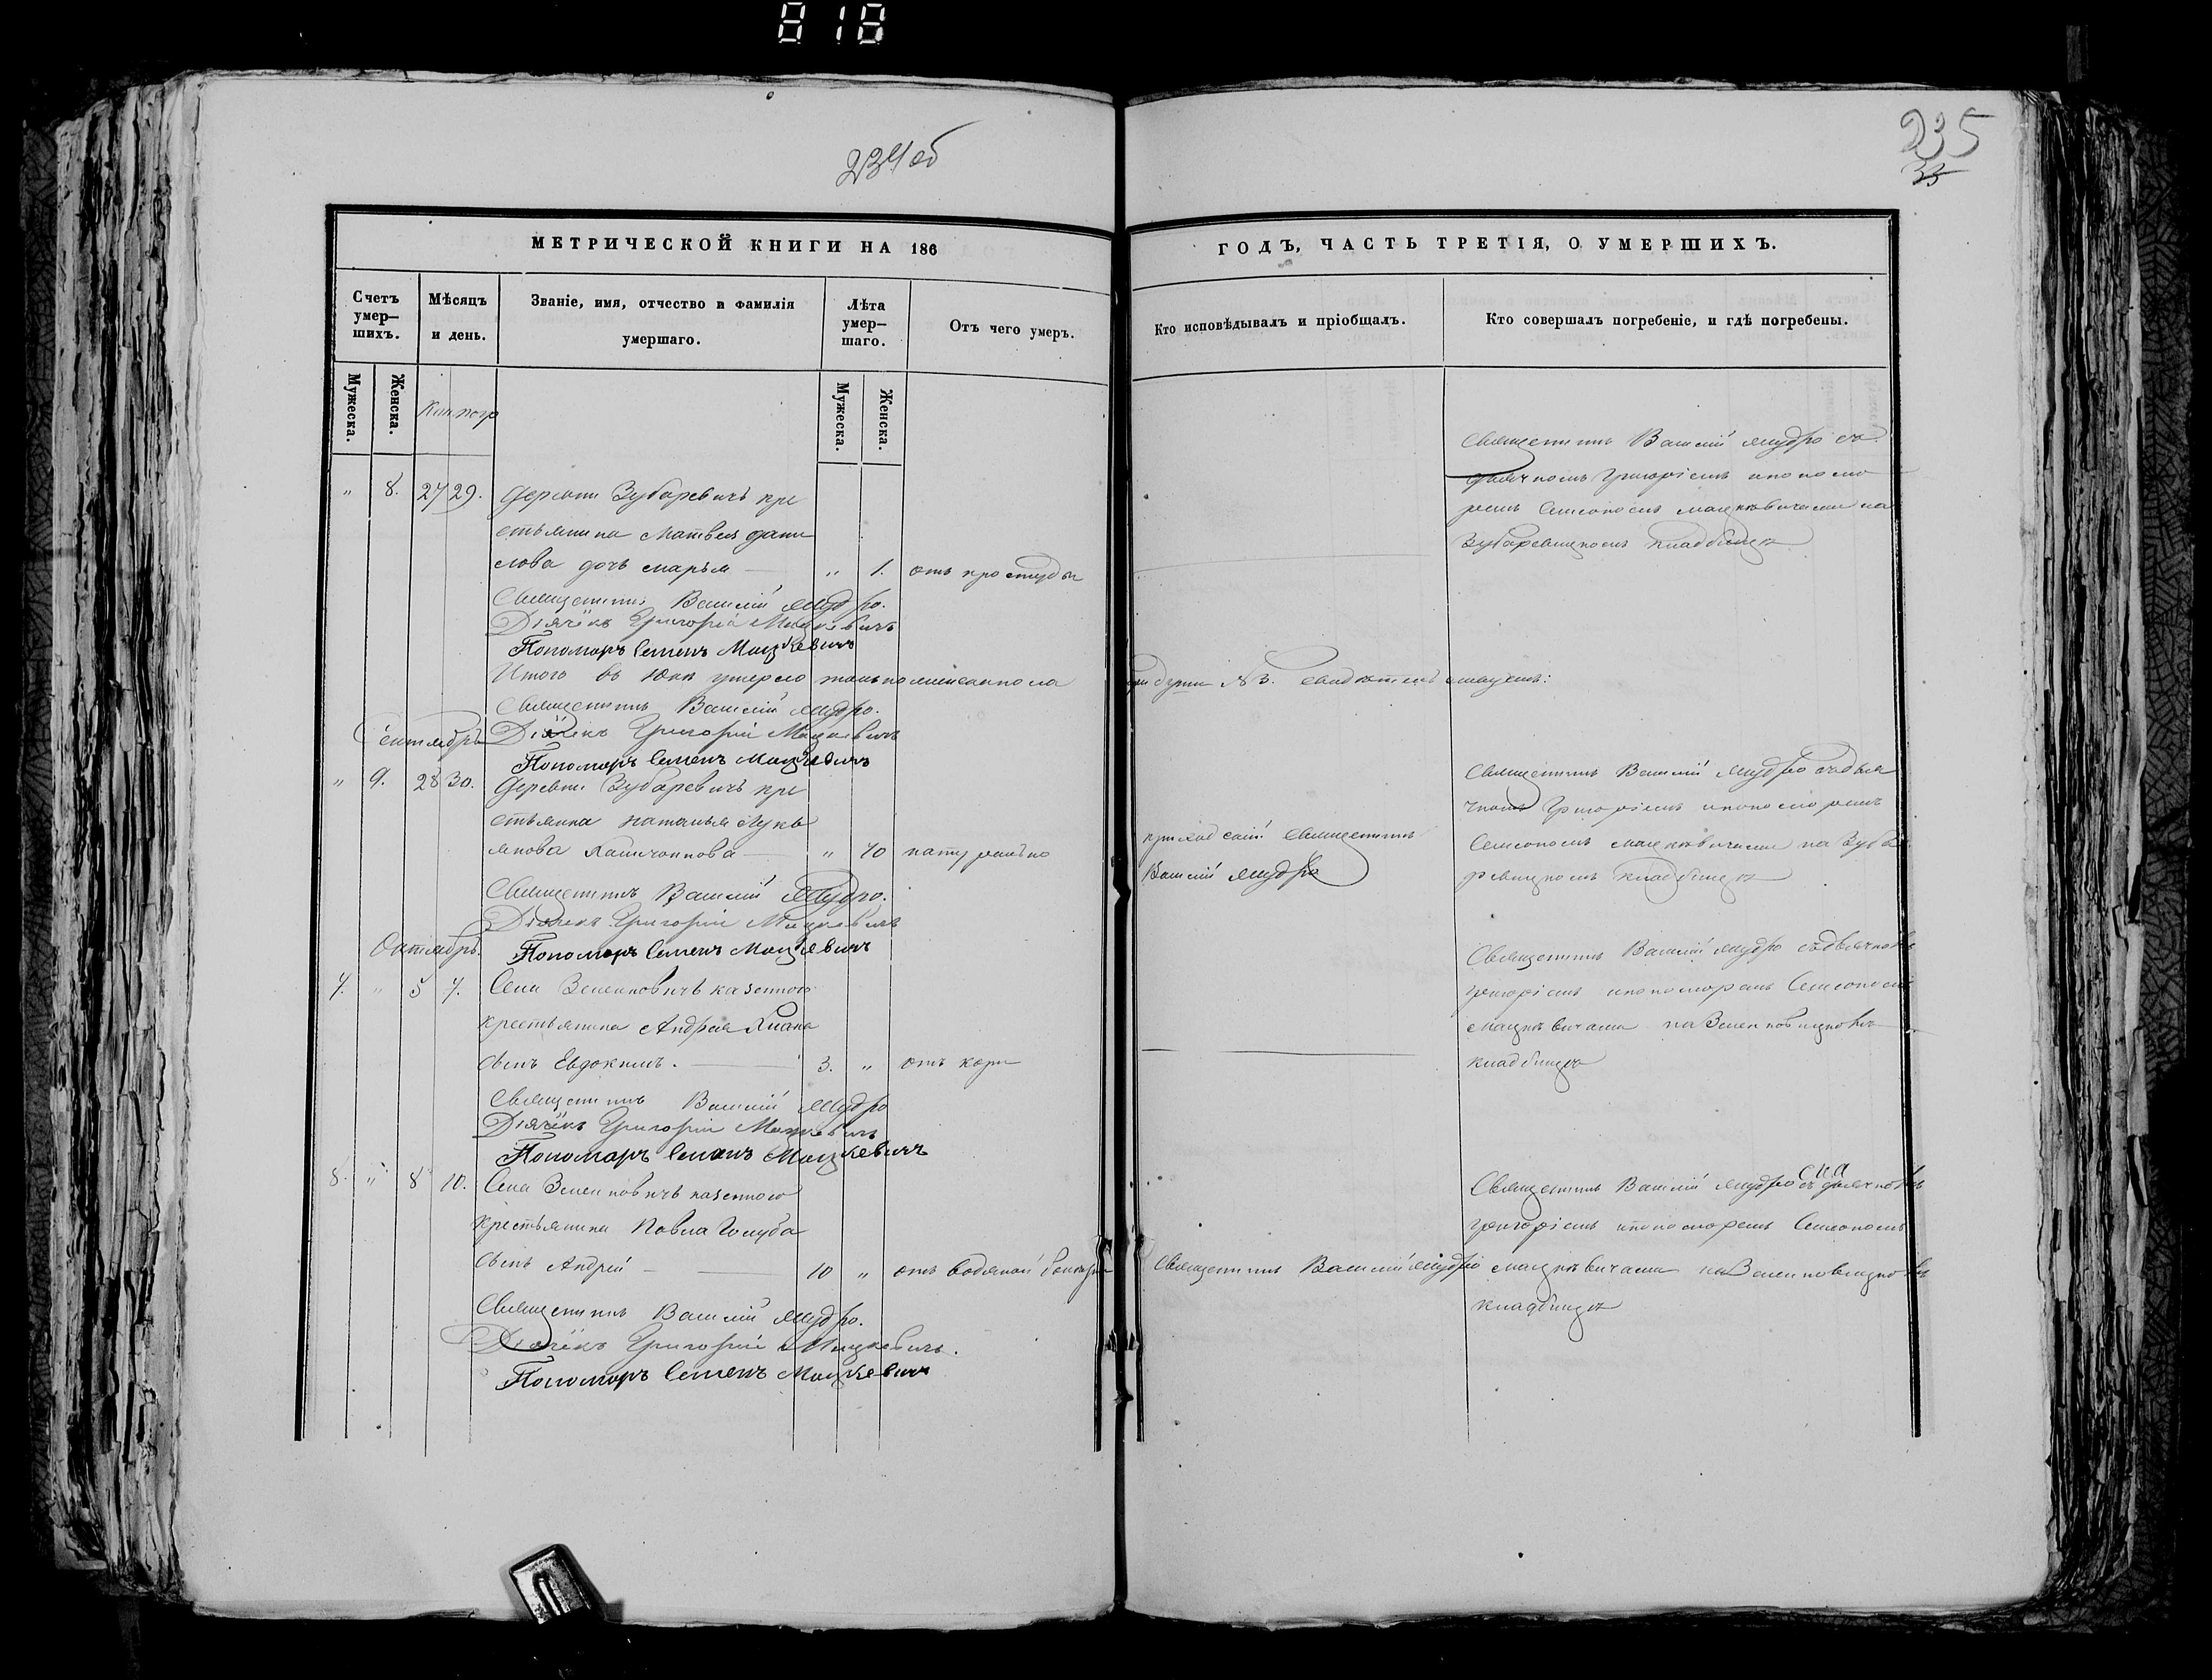 818
234об
235
33
МЕТРИЧЕСКОЙ КНИГИ НА 186
ГОДЪ, ЧАСТЬ ТРЕТІЯ, О УМЕРШИХЪ.
Счетъ умер-шихъ.
Мѣсяцъ и день.
Званіе, имя, отчество и фамилія умершаго.
Лѣта умер-шаго.
Отъ чего умеръ.
Кто исповѣдывалъ и пріобщалъ.
Кто совершалъ погребеніе, и гдѣ погребены.
Мужеска.
Женска.
Мужеска.
Женска.
" 8. 27 29. Деревни Зубаревичъ кре
стьянина Матвея Дани
лова дочь Марья — " 1. отъ простуды
Священникъ Василій Мудро съ
дьячкомъ Григоріемъ и понома
ремъ Симеономъ Мацкевичами на
Зубаревицкомъ кладбищѣ
Священникъ Василій Мудро.
Діячёкъ Григорій Мацкевичъ
Пономаръ Семенъ Мацкевичъ
Итого въ умерло женска пола
№ 3.
Священникъ Василій Мудро.
Діячёкъ Григорій Мацкевичъ
Пономаръ Семенъ Мацкевичъ
Сентябрь
" 9. 28 30. Деревни Зубаревичъ кре
стьянка Наталья Лукь
янова — " 70 натурально
приходскій Священникъ
Василій Мудро
Священникъ Василій Мудро съ дья
чкомъ Григоріемъ и пономаремъ
Симеономъ Мацкевичами на Зуба
ревицкомъ кладбищѣ
Священникъ Василій Мудро.
Діячёкъ Григорій Мацкевичъ
Пономаръ Семенъ Мацкевичъ
Октябрь.
7. " 5 7. Села Зеленковичъ казенного
крестьянина Андрея
сынъ Евдокимъ. — 3. " отъ кори
Священникъ Василій Мудро съ дьячкомъ
Григоріемъ и пономаремъ Симеономъ
Мацкевичами на Зеленковицкомъ
кладбищѣ
Священникъ Василій Мудро
Діячёкъ Григорій Мацкевичъ
Пономаръ Семенъ Мацкевичъ
8. " 8 10. Села Зеленковичъ казенного
крестьянина Павла Голуба
сынъ Андрей — 10 " отъ водяной болезни
Священникъ Василій Мудро
Священникъ Василій Мудро съ дьячкомъ
Григоріемъ и пономаремъ Симеономъ
Мацкевичами на Зеленковицкомъ
кладбищѣ
Священникъ Василій Мудро.
Діячёкъ Григорій Мацкевичъ.
Пономаръ Семенъ Мацкевичъ